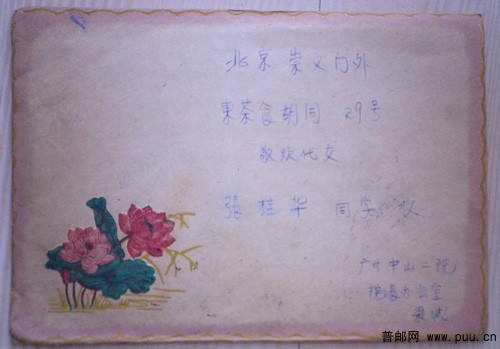 北京崇文门外
東茶食胡同 29号
敬烦代交
张桂华 同学 收
广州中山二院
院长办公室
普邮网 www.puu.cn